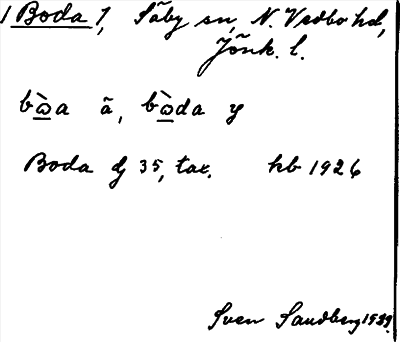 1 Boda 1, Säby sn, N. Vedbo hd,
Jönk. l.
bὼa ä, bὼda y
Boda dj 35, tax. hb 1926
Sven Sandberg 1929.